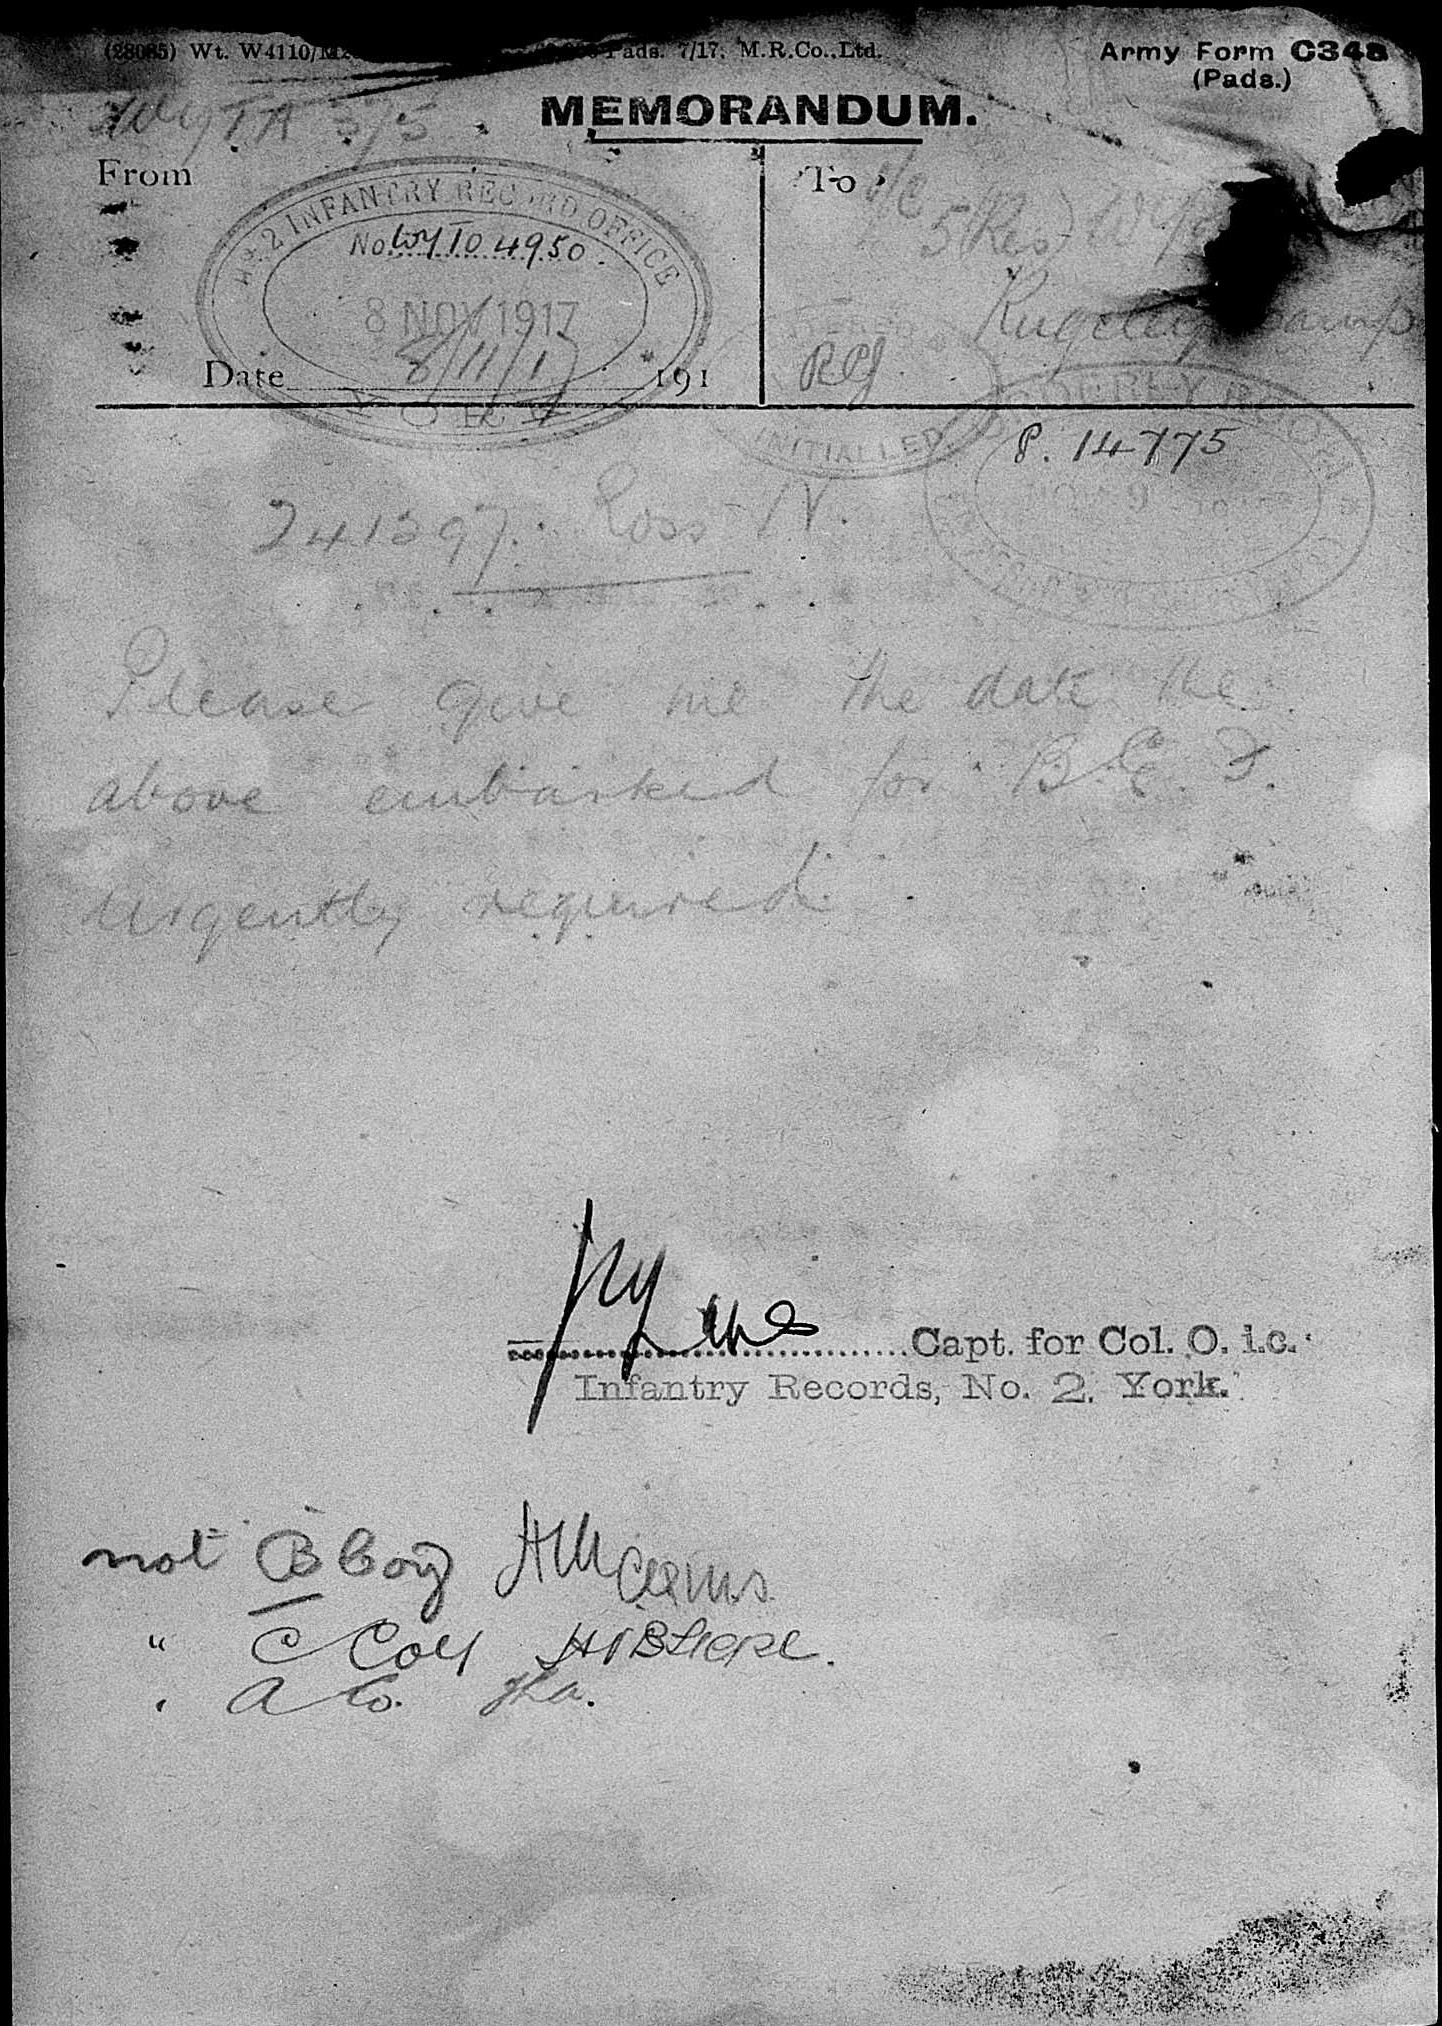 (28085) Wt. W4110/ Pads. 7/17. M.R.Co.,Ltd.
Army Form C348
(Pads.)
MEMORANDUM.
From
To
5 (Res)
Rugeley Camp
No. 2 INFANTRY RECORD OFFICE
No. WY TO 4950.
8 NOV 1917
8/11/17
Date 191
YORK
INITIALLED
ORDERLY ROOM
P. 14775
NOV 9
241397. Ross N.
Please give me the date the
above embarked for B.E.F.
urgently required.
Capt. for Col. O. i.c.
Infantry Records, No. 2, York.
not B Coy
" C Coy
" A Co.